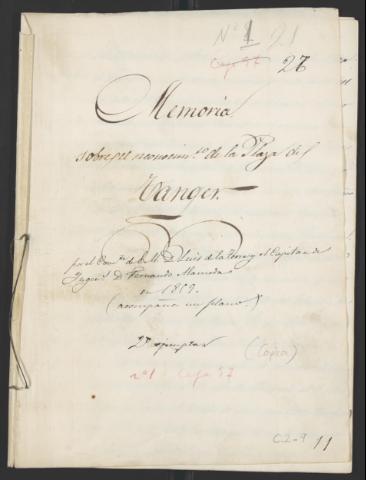 Nº 1 21
Caja 97 27
Memoria
sobre el reconocim.to de la Plaza de
Tanger.
por el Com.te de E. M. D. Luis de la Torre y el Capitan de
Ingen.s D. Fernando Alameda
en 1859.
(acompaña un plano.)
2º ejemplar (Copia)
nº 1 Caja 97
C.2-9 11